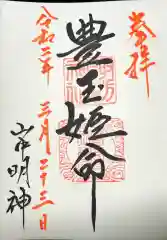 奉拝
豊玉姫命
令和二年
三月二十三日
山中明神